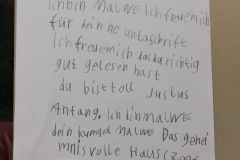 Ich bin MALWE Ich freue mich
für deine untaschrift
Ich freue mich das du richtig
gut gelesen hast
du bist toll Justus
Anfang, Ich binmalwe
dein kumpel malwe Das gehei
mnisvolle Haus